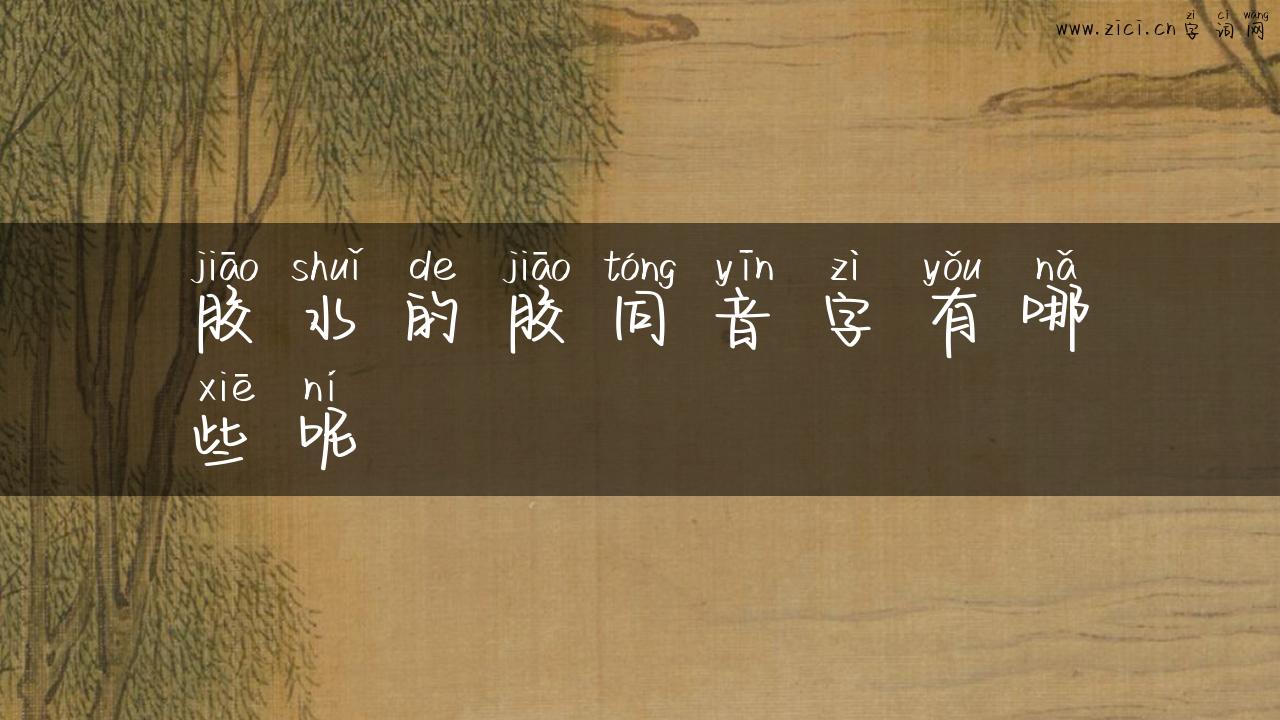 zì cí wǎng
www.zici.cn 字 词 网
jiāo shuǐ de jiāo tóng yīn zì yǒu nǎ
胶 水 的 胶 同 音 字 有 哪
xiē ní
些 呢